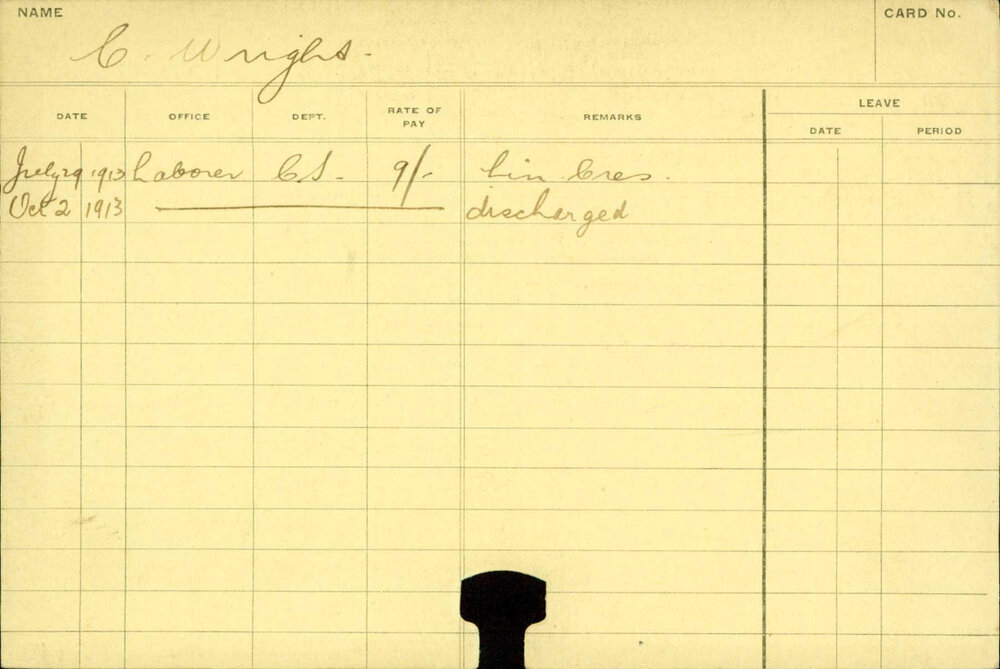 NAME CARD No.
C. Wright.
DATE OFFICE DEPT. RATE OF PAY REMARKS LEAVE
DATE PERIOD
July 29 1913 Laborer C.S. 9/- Lin. Cres.
Oct 2 1913 discharged